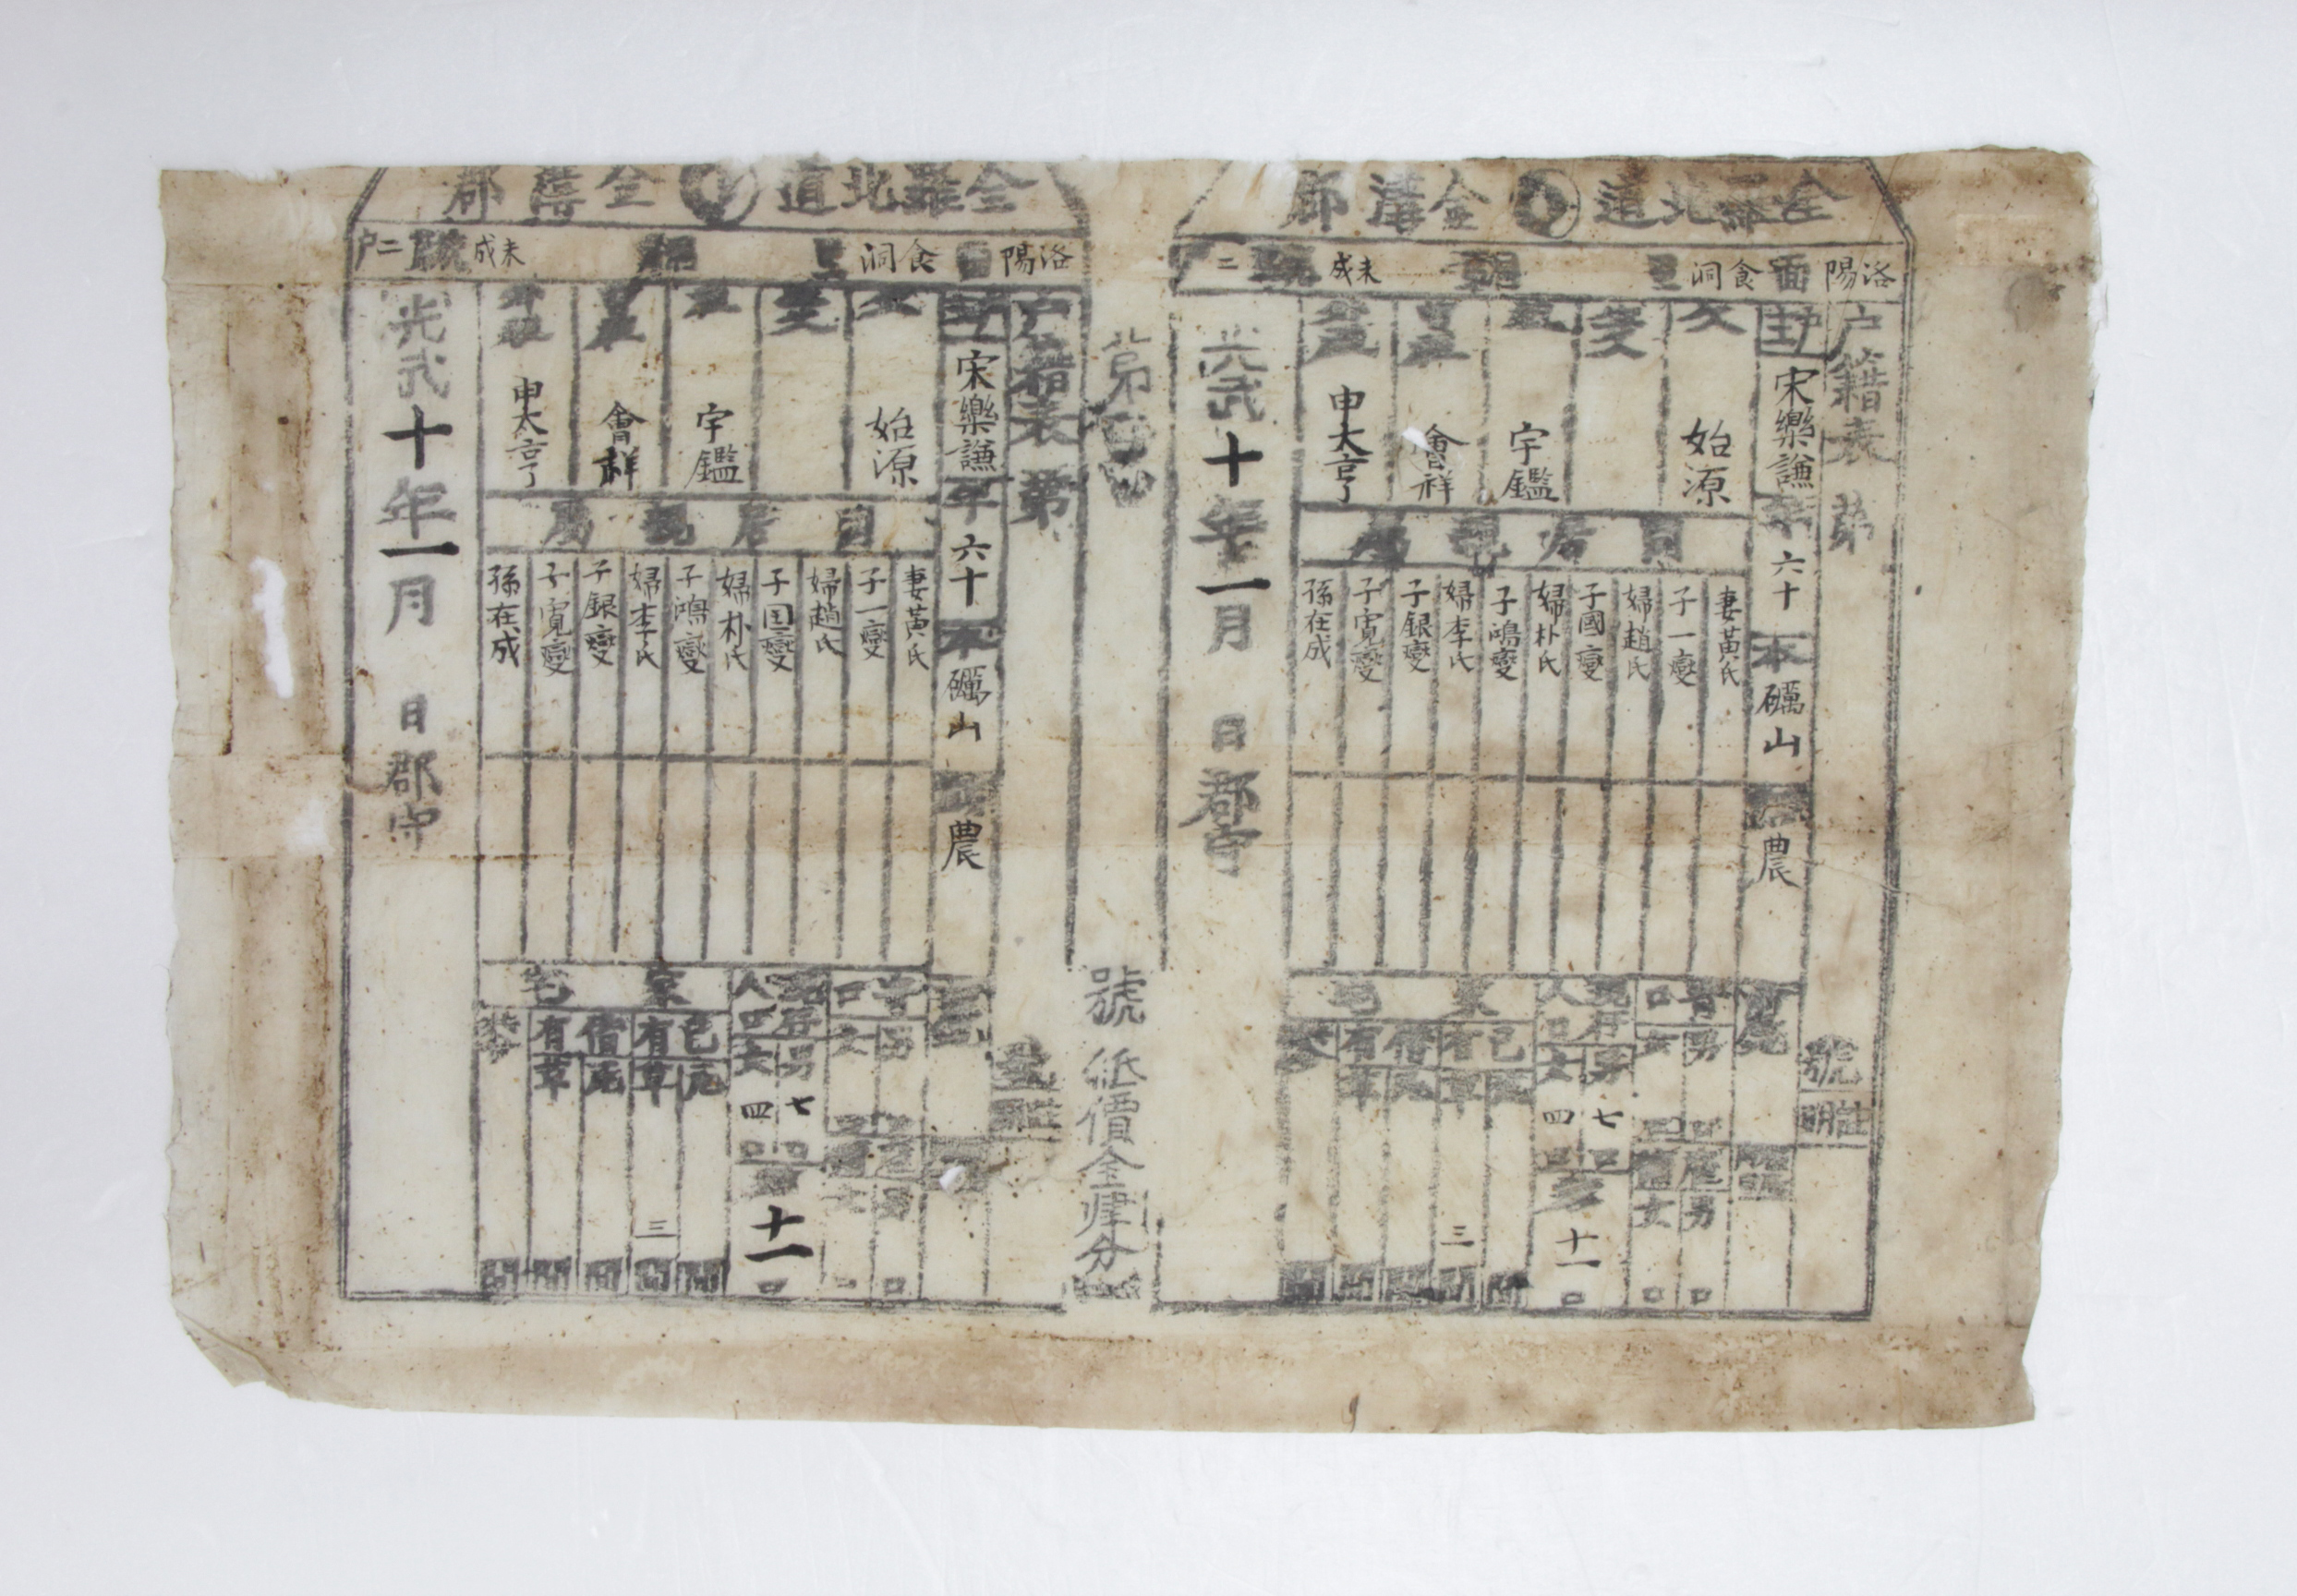 全羅北道 金溝郡
洛陽面 食洞里 未成統 二
戶籍表 第 號
戶主 宋樂謙 年 六十 本 礪山 農
父 始源
生父
祖 宇鑑
曾祖 會祥
外祖 申大亨
同居親屬
妻黃氏
子一燮
婦趙氏
子國燮
婦朴氏
子鴻燮
婦李氏
子銀燮
子寬燮
孫在成
寄口 男 口 女 口
雇傭 男 口 女 口
現存人口 男 七 口 女 四 口 十一 口
家宅
己有 瓦 間 草 三 間
借有 瓦 間 草 間
光武十年一月 日 郡守
第 號 紙價金肆分
全羅北道 金溝郡
洛陽面 食洞里 未成統 二戶
戶籍表 第
戶主 宋樂謙 年 六十 本 礪山 農
父 始源
生父
祖 宇鑑
曾祖 會祥
外祖 申太亨
同居親屬
妻黃氏
子一燮
婦趙氏
子国燮
婦朴氏
子鴻燮
婦李氏
子銀燮
子寬燮
孫在成
寄口 男 女
男 口 女 口
現存人口 男 七 口 女 四 口 十一 口
家宅
己有 瓦 間 草 三 間
借有 瓦 間 草 間
光武十年一月 日 郡守